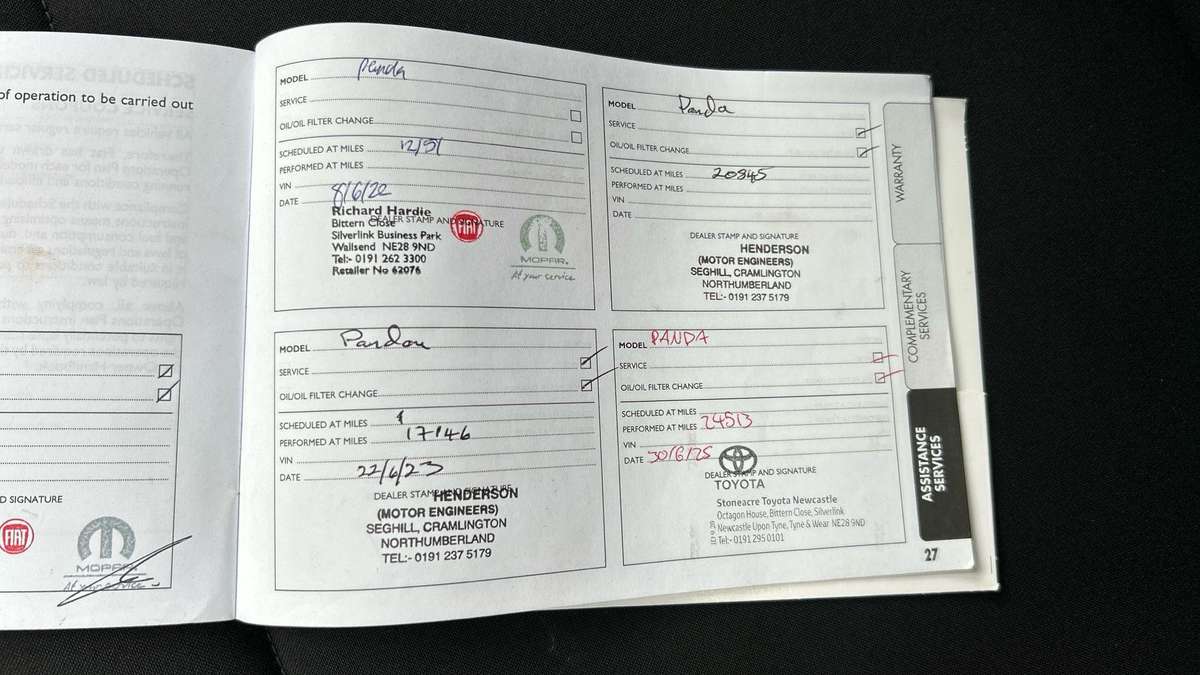 SCHEDULED SERVIC
of operation to be carried out
D SIGNATURE
FIAT
MOPAR
At your service
MODEL Panda
SERVICE
OIL/OIL FILTER CHANGE
SCHEDULED AT MILES 12151
PERFORMED AT MILES
VIN
DATE 8/6/22
DEALER STAMP AND SIGNATURE
Richard Hardie
Bittern Close
Silverlink Business Park
Wallsend NE28 9ND
Tel:- 0191 262 3300
Retailer No 62076
FIAT
MOPAR®
At your service
MODEL Panda
SERVICE
OIL/OIL FILTER CHANGE
SCHEDULED AT MILES 20845
PERFORMED AT MILES
VIN
DATE
DEALER STAMP AND SIGNATURE
HENDERSON
(MOTOR ENGINEERS)
SEGHILL, CRAMLINGTON
NORTHUMBERLAND
TEL:- 0191 237 5179
MODEL Panda
SERVICE
OIL/OIL FILTER CHANGE
SCHEDULED AT MILES
PERFORMED AT MILES 17146
VIN
DATE 22/6/23
DEALER STAMP AND SIGNATURE
HENDERSON
(MOTOR ENGINEERS)
SEGHILL, CRAMLINGTON
NORTHUMBERLAND
TEL:- 0191 237 5179
MODEL PANDA
SERVICE
OIL/OIL FILTER CHANGE
SCHEDULED AT MILES
PERFORMED AT MILES 24513
VIN
DATE 30/6/25
DEALER STAMP AND SIGNATURE
TOYOTA
Stoneacre Toyota Newcastle
Octagon House, Bittern Close, Silverlink
Newcastle Upon Tyne, Tyne & Wear NE28 9ND
Tel:- 0191 295 0101
WARRANTY
COMPLEMENTARY
SERVICES
ASSISTANCE
SERVICES
27